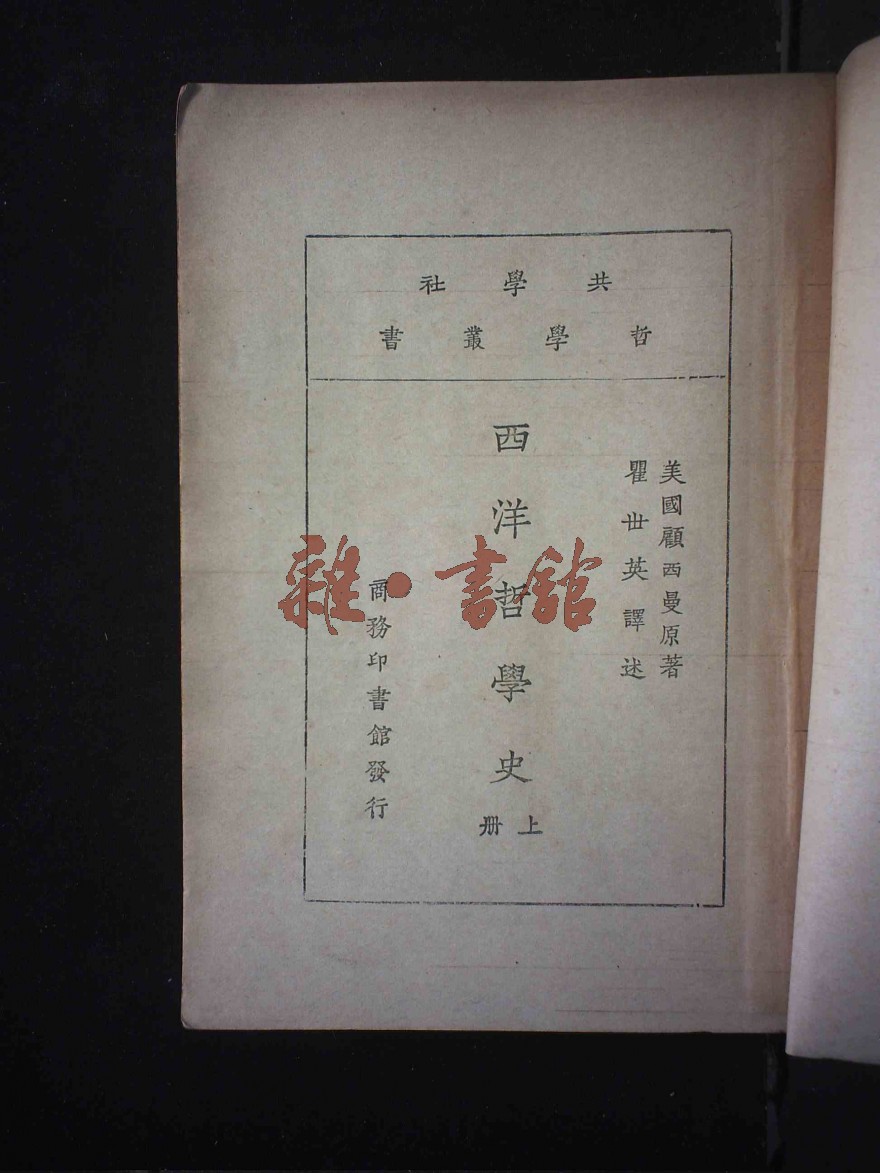 共學社
哲學叢書
美國顧西曼原著
瞿世英譯述
西洋哲學史
上册
商務印書館發行
雜·書館